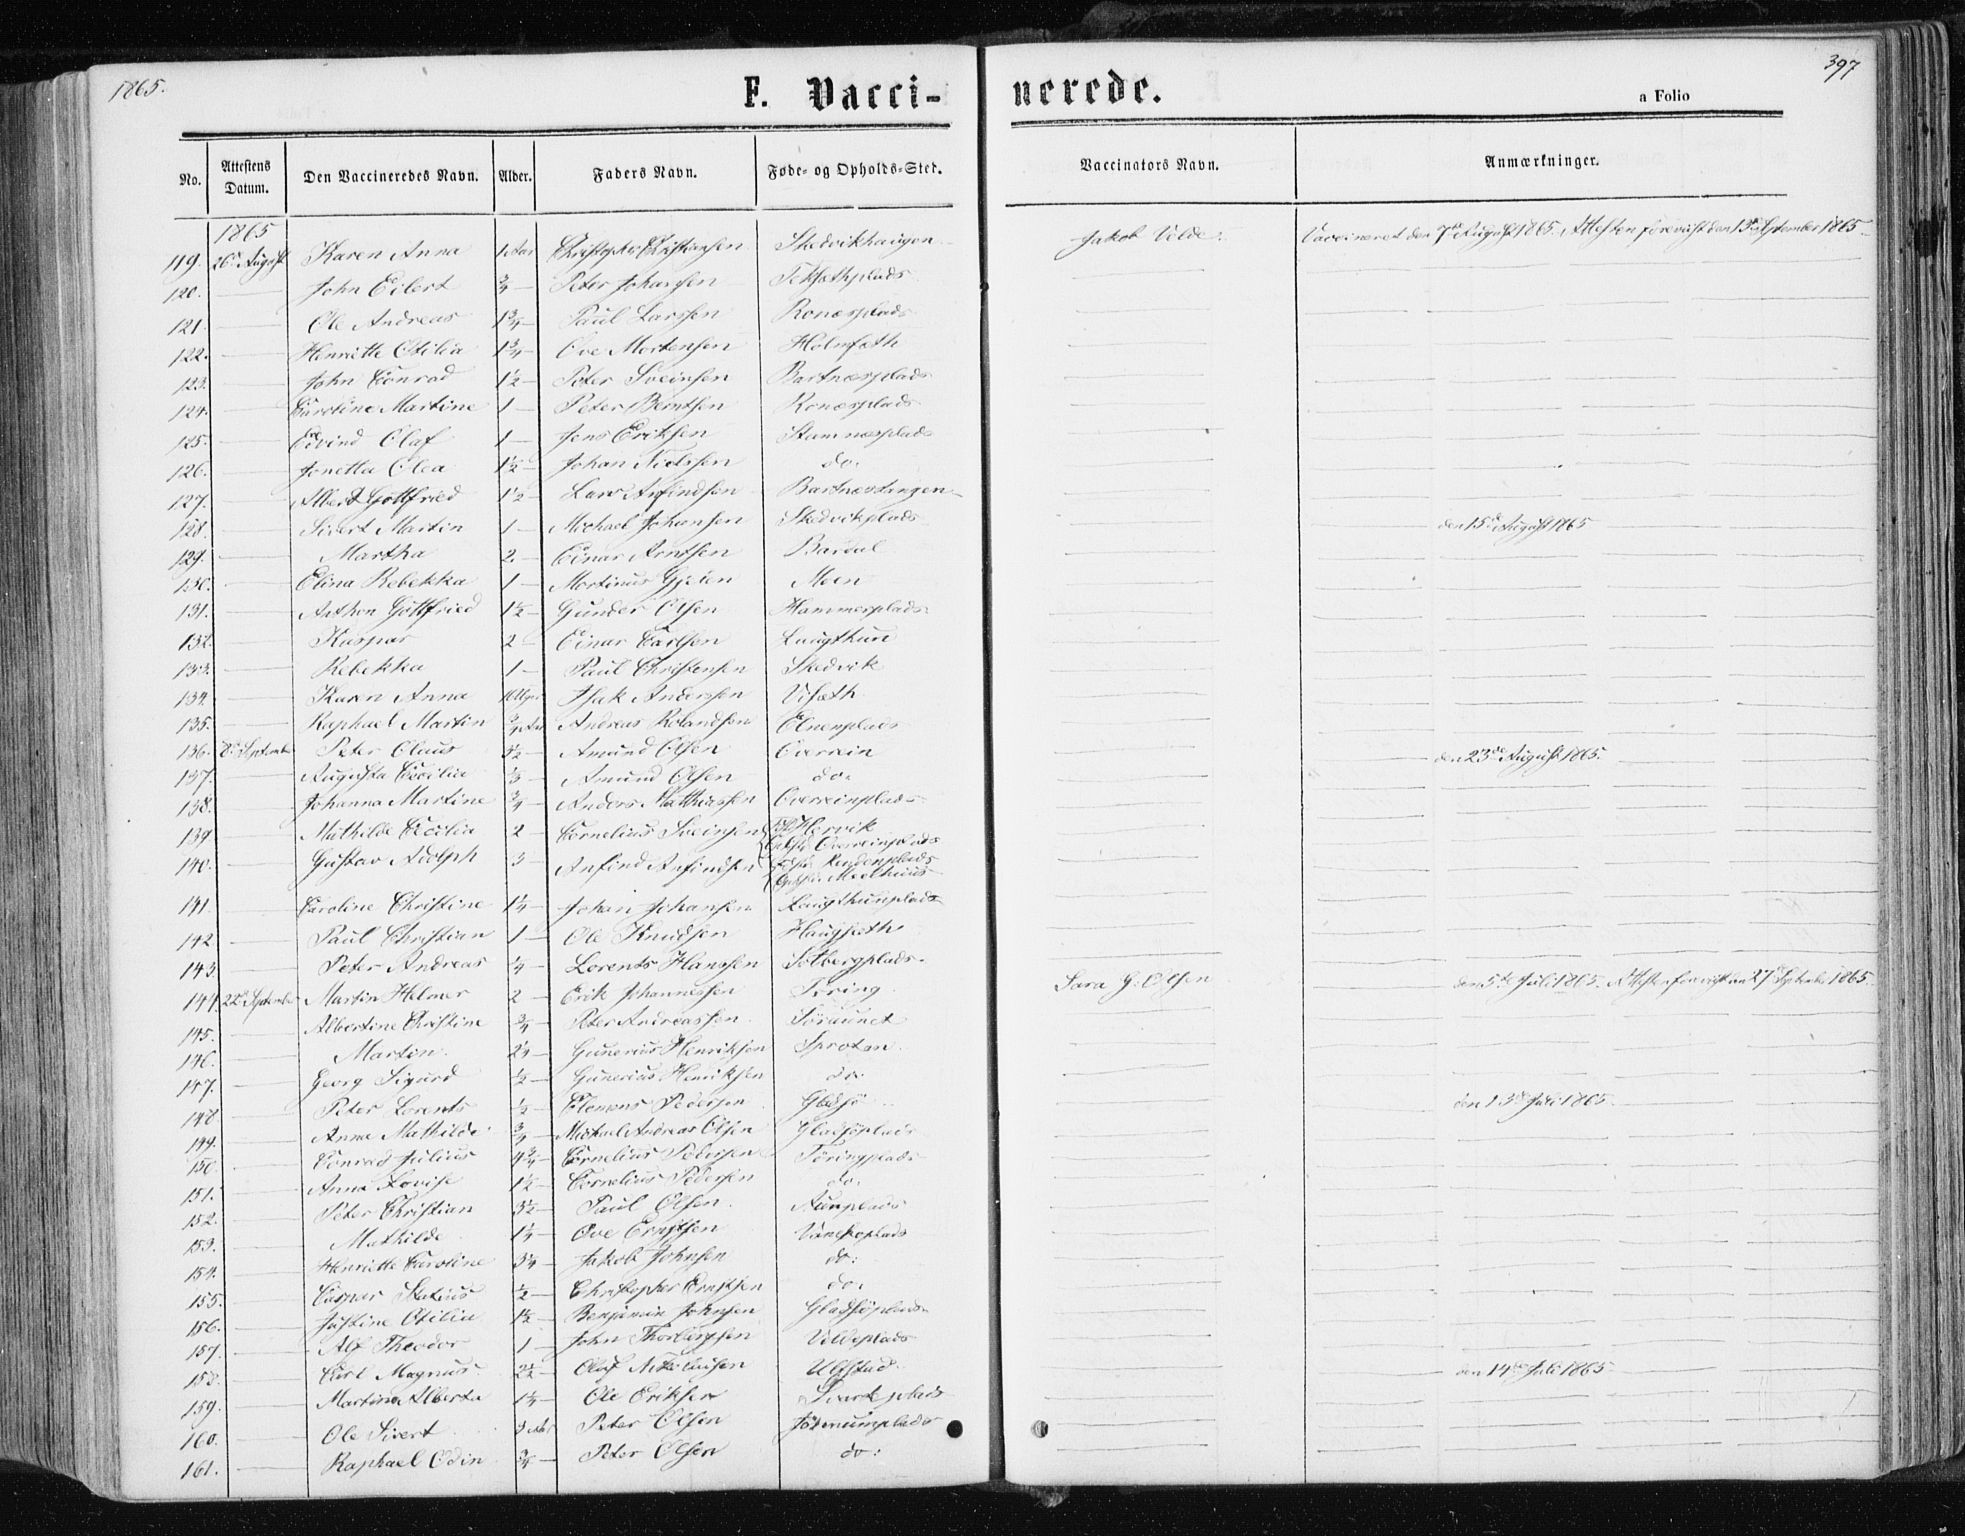 1865.
F. Vacci-nerede.
a Folio
397
No. | Attestens Datum. | Den Vaccineredes Navn. | Alder. | Faders Navn. | Føde- og Opholds-Sted. | Vaccinators Navn. | Anmærkninger.
1865
119. 26de August Karen Anna 1 Aar Christopher Christiansen Skedvikhaugen Jakob Velde. Vaccineret den 7de August 1865. Attesten forevist den 15de September 1865.
120. — John Eilert 3/4 — Peter Johansen
121. — Ole Andreas 1 3/4 — Paul Larssen Ronæsplads
122. — Henriette Otilia 1 3/4 — Ove Mortensen Holmsæth
123. — John Conrad 1 1/2 — Peter Sveinsen Bartnæsplads
124. — Caroline Martine 1 — Peter Berntsen Ronæsplads
125. — Edvind Olaf 1 — Jens Eriksen Stamnæsplads
126. — Jonetta Olea 1 1/2 — Johan Nielssen do.
127. — Albert Gottfried 1 1/2 — Lars Anfindsen Bartnæstangen
128. — Sivert Martin 1 — Michael Johansen Skedvikplads den 15de August 1865
129. — Martha 2. — Einar Arntsen Bardal
130. — Elina Rebekka 1 — Mortinus Moen
131. — Anthon Gottfried 1 1/2 — Gunder Olsen Hammerplads
132. — Kaspar 2 — Einar Carlsen Langthun
133. — Rebekka 1 — Paul Christensen Skedvik
134. — Karen Anna Isak Anderssen Visæth
135. — Raphael Martin 3/4 Aar Andreas Rolandsen Elnenplads
136. 8de September Peter Olaus 3 1/2 — Amund Olsen Overrein den 23de August 1865.
137. — Augusta Cecilia Amund Olsen do.
138. — Johanna Martine 3/4 — Anders Mathiassen Overreinplads
139. — Mathilde Cecilia 2 — Cornelius Sveinsen Hervik
Overreinplads
140. — Gustav Adolph 3 — Anfind Anfindsen
141. — Caroline Christine 1 1/4 — Johan Johansen Langthunplads
142. — Paul Christian 1 — Ole Knudsen Haugsæth
143. — Peter Andreas 1/4 — Lorents Hanssen Solbergplads
144. 22de September Martin Helmer 2 — Erik Johannessen Sara G. Olsen den 5te Juli 1865. Attesten forevist den 27de September 1865.
145. — Albertine Christine 3/4 — Peter Andreassen Søraunet
146. — Martin 2 1/4 — Gunerius Henriksen
147. — Georg Sigurd 1/2 — Gunerius Henriksen do.
148 — Peter Lorents 1/2 — Clemens Pedersen Gladsø den 13de Juli 1865.
149. — Anne Mathilde 3/4 — Michael Andreas Olsen Gladsøplads
150. — Conrad Julius 4 3/4 — Cornelius Pedersen
151. — Anna Lovise 1 1/2 — Cornelius Pedersen do.
152. — Peter Christian 3 1/2 — Paul Olsen Aunplads
153. — Mathilde 1 1/4 — Ove Ernstsen
154. — Henriette Caroline 3 1/4 — Jakob Johnsen do:
155. — Caspar 1/2 — Christopher Ernstsen do.
156. — Justine Otilia 1 1/2 — Benjamin Johnsen Gladsøplads
157. — Alf Theodor 1 — John Veldeplads
158. — Carl Magnus 2 1/2 — Olaf Nikolaisen Ulfstad den 14de Juli 1865.
159. — Martina Alberta 1 1/4 — Ole Eriksen
160. — Ole Sivert 3 Aar Peter Olsen
161. — Raphael Odin 3/4 — Peter Olsen do: